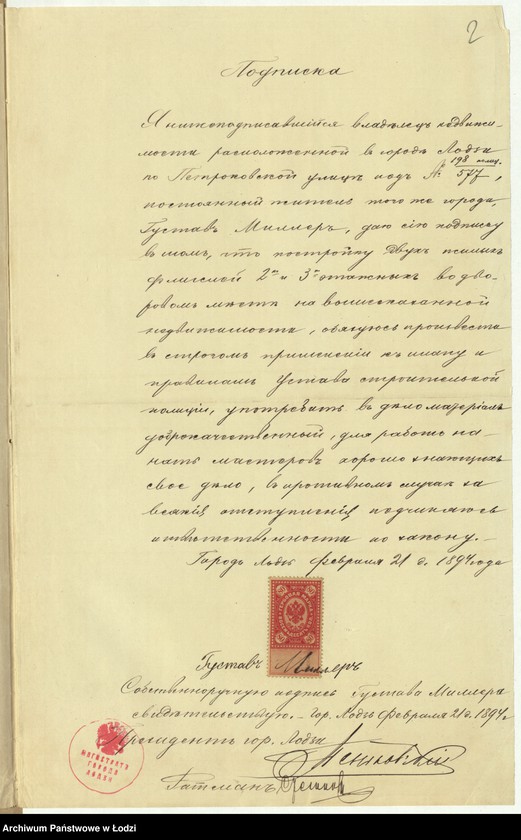 2
Подписка
Я нижеподписавшійся владѣлецъ недвижи-
мости расположенной въ городѣ Лодзи
по Петроковской улицѣ подъ № 198 нов./577,
постоянный житель того же города,
Густавъ Миллеръ, даю сію подписку
въ томъ, что постройку двухъ жилыхъ
флигелей 2хъ и 3хъ этажныхъ во дво-
ровомъ мѣстѣ на вышесказанной
недвижимости, обязуюсь произвести
въ строгомъ примѣненіи къ плану и
правиламъ Устава строительной
полиціи, употребить въ дѣло матеріалъ
доброкачественный, для работъ на-
нять мастеровъ хорошо знающихъ
свое дѣло, въ противномъ случаѣ за
всякія отступленія подчиняюсь
отвѣтственности по закону.-
Городъ Лодзь февраля 21 д. 1894 года
80 80
80 80
Густавъ Миллеръ
Собственноручную подпись Густава Миллера
свидѣтельствую.- Гор. Лодзь февраля 21 д. 1894 г.
Президентъ гор. Лодзи Пеньковскій
МАГИСТРАТЪ
ГОРОДА
ЛОДЗИ
Archiwum Państwowe w Łodzi